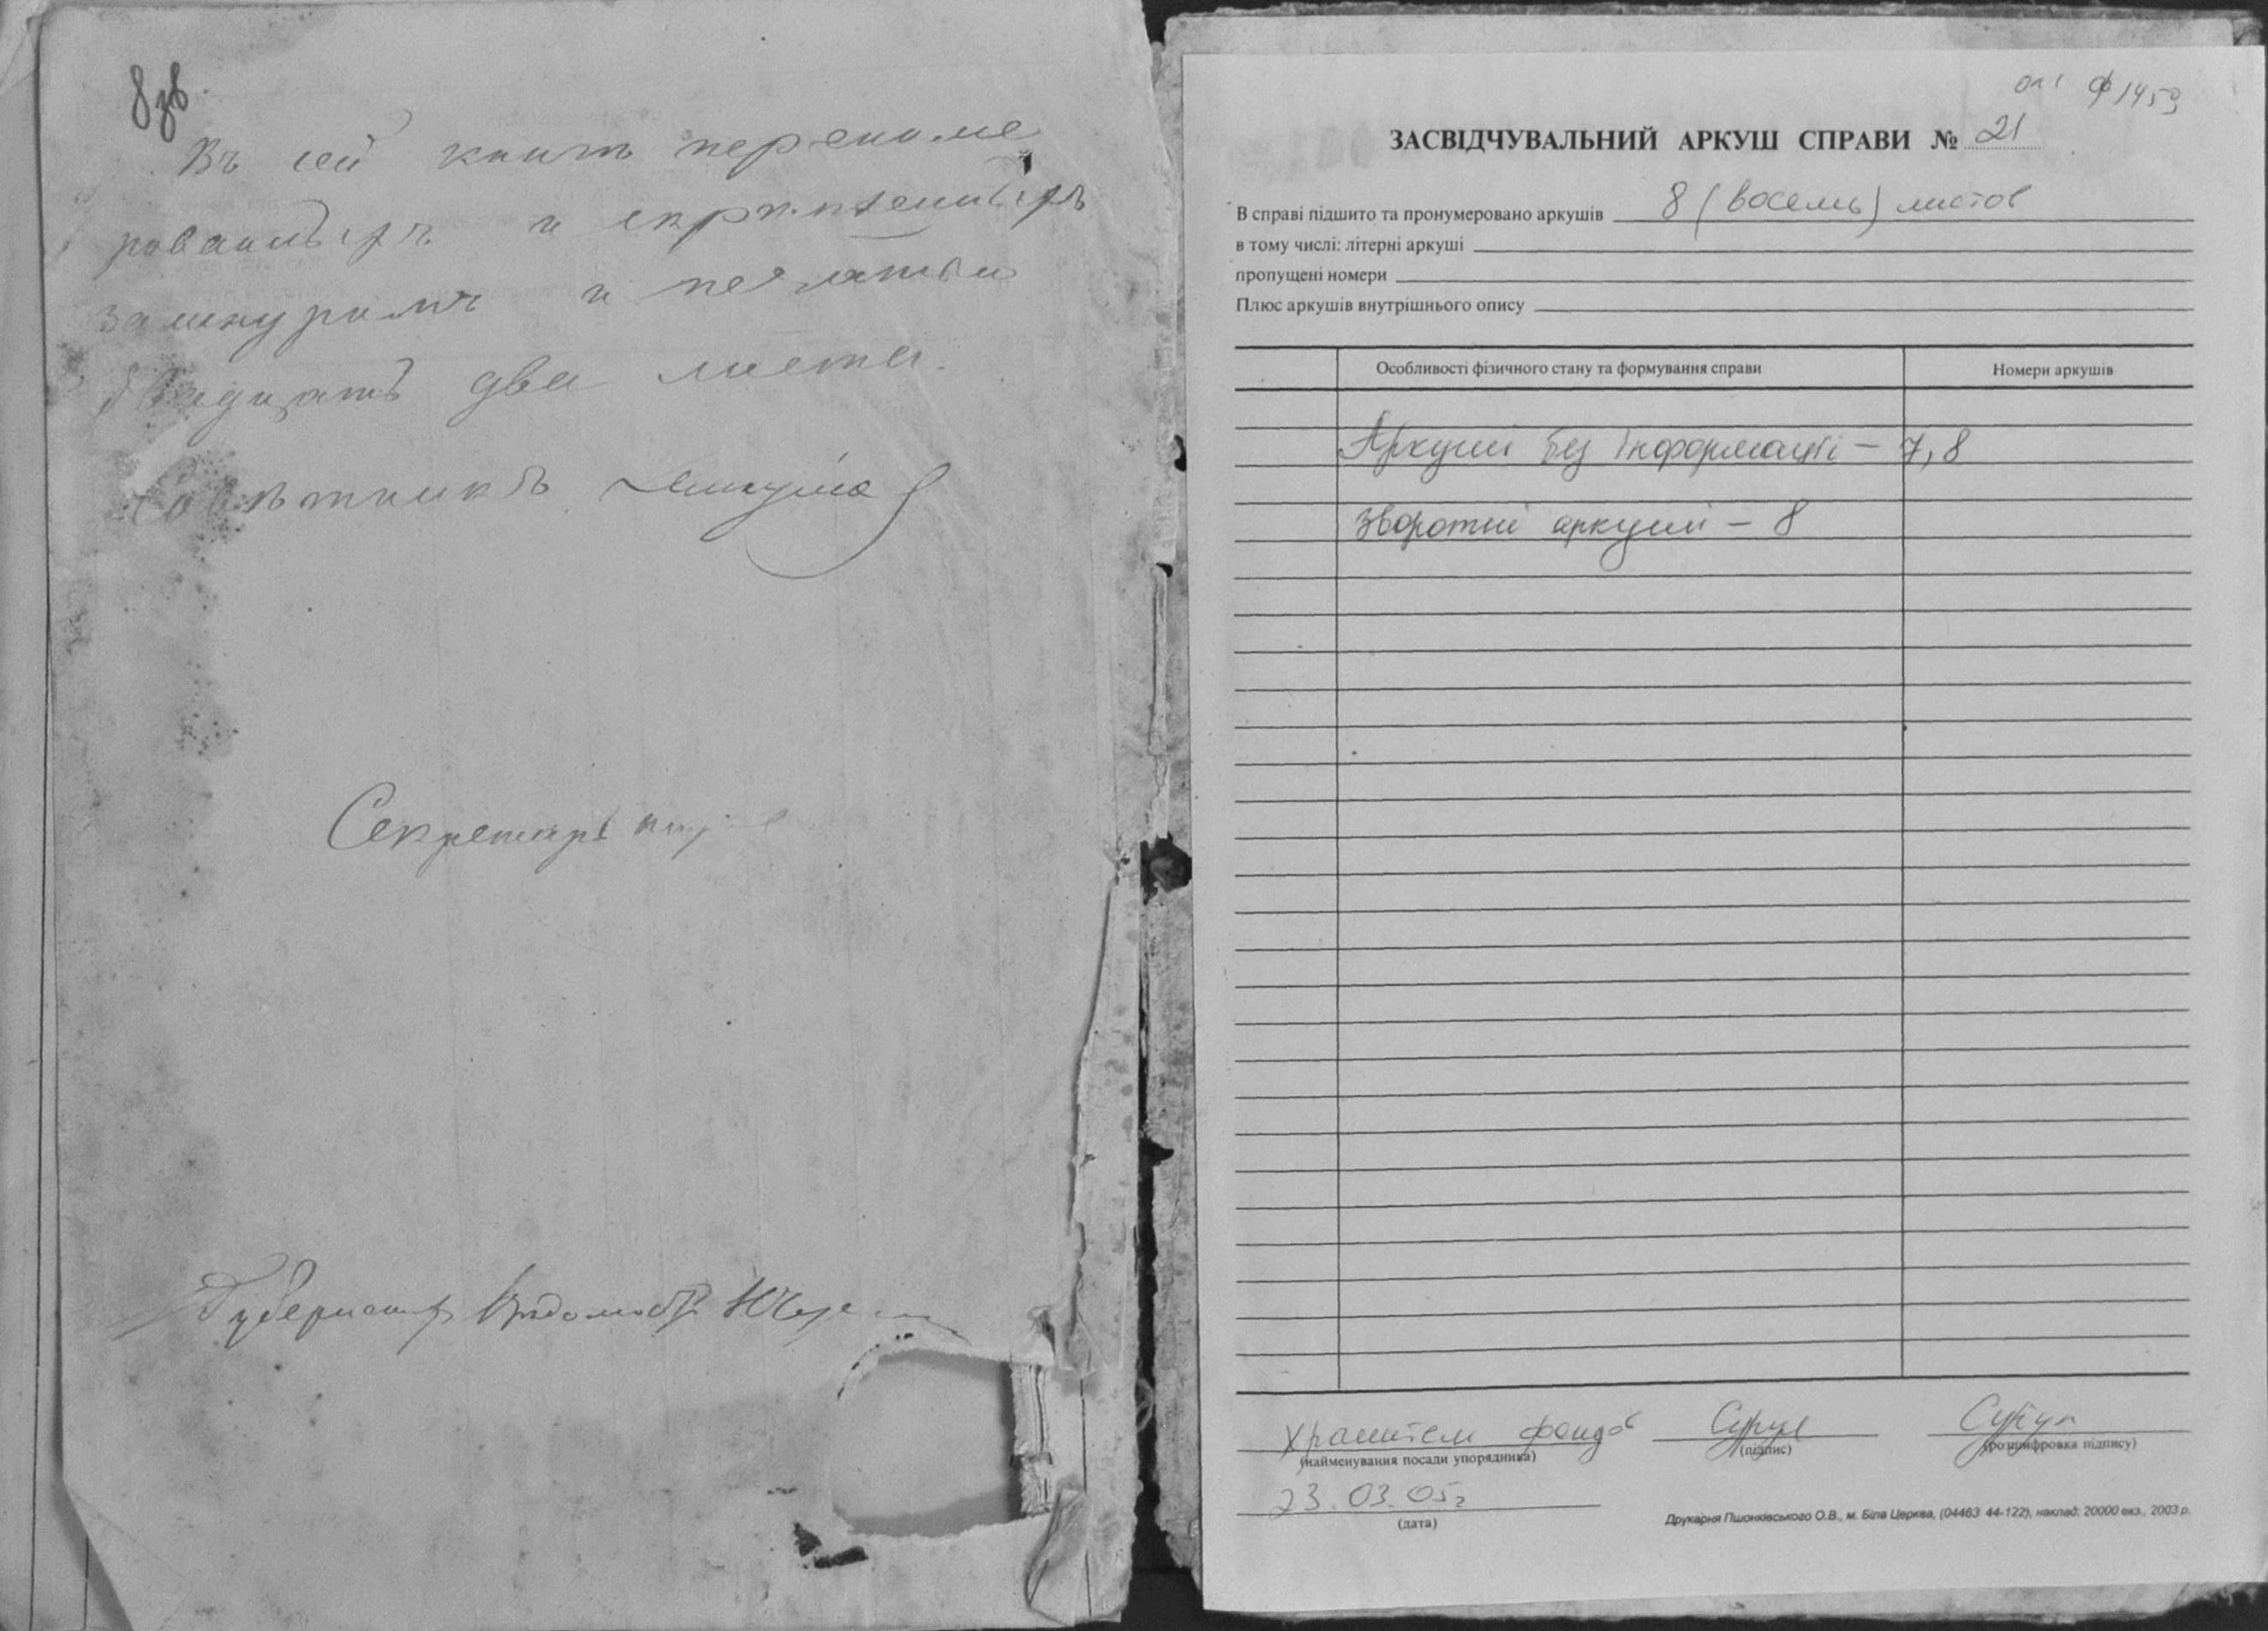 8зв.
Въ сей книгѣ перенуме
рованныхъ и скрѣпленныхъ
за шнуромъ и печатью
двадцать два листа.
Совѣтникъ
Секретарь
оп 1 ф 1459
ЗАСВІДЧУВАЛЬНИЙ АРКУШ СПРАВИ № 21
В справі підшито та пронумеровано аркушів 8 (восемь) листов
в тому числі: літерні аркуші
пропущені номери
Плюс аркушів внутрішнього опису
Особливості фізичного стану та формування справи Номери аркушів
Аркуші без інформації – 7, 8
Зворотні аркуші – 8
хранитель фондов
(найменування посади упорядника) (підпис) (розшифровка підпису)
23.03.05г
(дата)
Друкарня Пшонківського О.В., м. Біла Церква, (04463 44-122), наклад: 20000 екз., 2003 р.